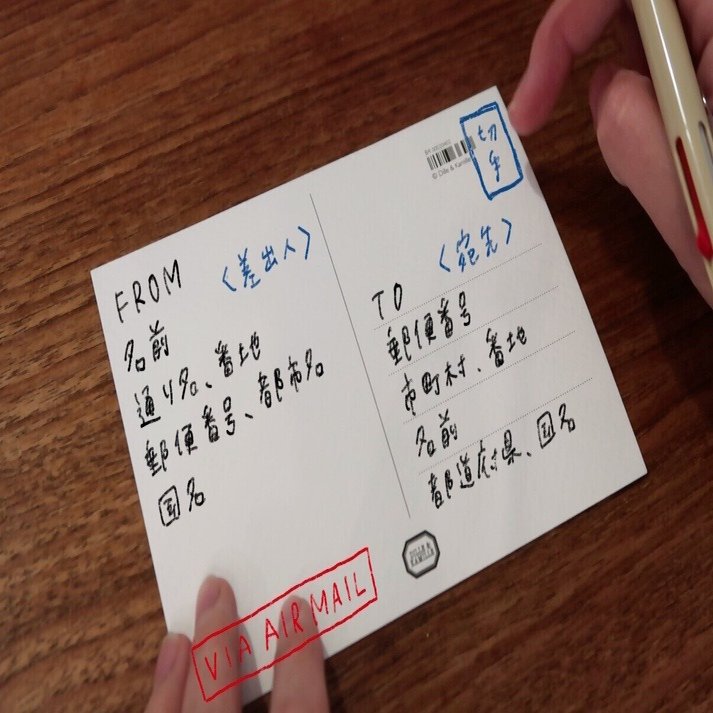 切手
© Dille & Kamille
FROM
〈差出人〉
名前
通り名、番地
郵便番号、都市名
国名
TO
〈宛先〉
郵便番号
市町村、番地
名前
都道府県、国名
DILLE &
KAMILLE
VIA AIR MAIL